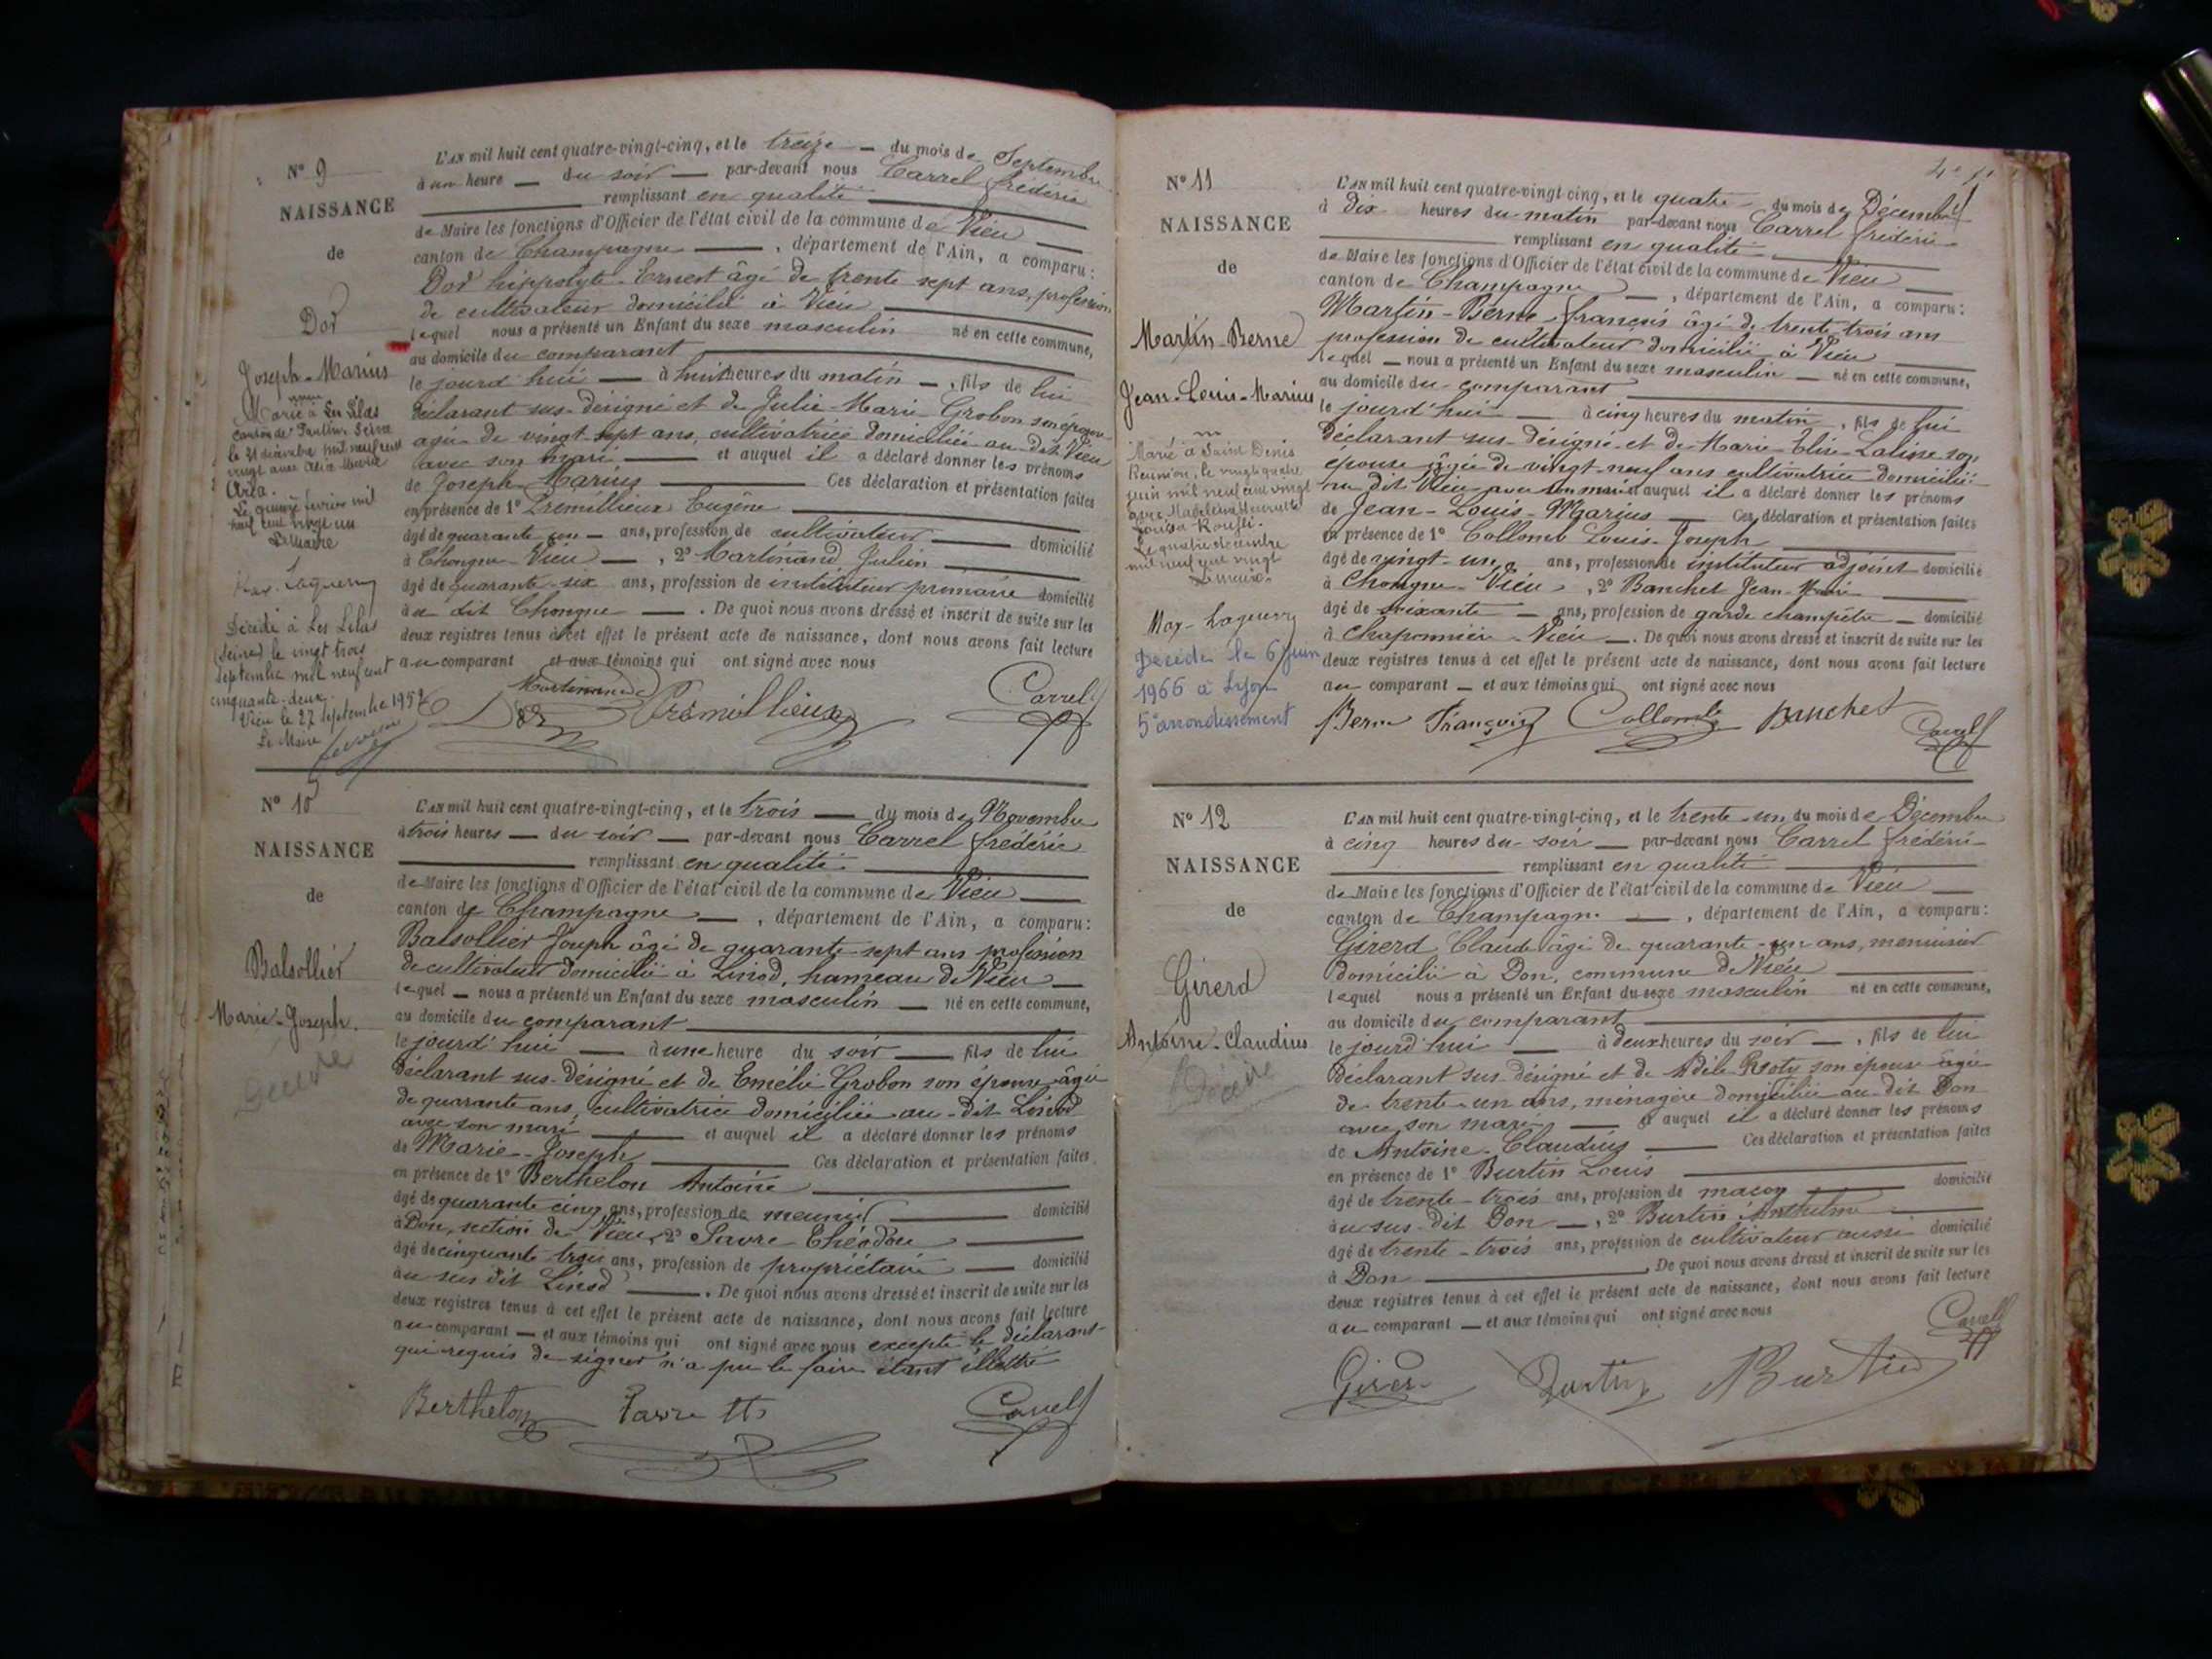 N° 9
NAISSANCE
de
Dor
Joseph-Marius
Marié à Les Lilas
canton de Pantin Seine
le 31 décembre mil neuf cent
vingt avec
Le quinze février mil
neuf cent vingt un
Le Maire
Décédé à Les Lilas
(Seine) le vingt trois
septembre mil neuf cent
cinquante-deux.
Vieu le 27 septembre 1952
Le Maire
L'AN mil huit cent quatre-vingt-cinq, et le treize — du mois de Septembre
à un heure — du soir — par-devant nous Carrel frédéric
remplissant en qualité
de Maire les fonctions d'Officier de l'état civil de la commune de Vieu
canton de Champagne —, département de l'Ain, a comparu :
Dor hippolyte-Ernest âgé de trente sept ans, profession
de cultivateur domicilié à Vieu
lequel nous a présenté un Enfant du sexe masculin né en cette commune,
au domicile du comparant
le jourd'hui — à huit heures du matin —, fils de lui
déclarant sus-désigné et de Julie-Marie Grobon son épouse
agée de vingt sept ans, cultivatrice domiciliée au dit Vieu
avec son mari — et auquel il a déclaré donner les prénoms
de Joseph-Marius — Ces déclaration et présentation faites
en présence de 1° Prémillieux Eugène
âgé de quarante — ans, profession de cultivateur — domicilié
à Chongne-Vieu —, 2° Martinand Julien
âgé de quarante-six ans, profession de instituteur primaire domicilié
au dit Chongne —. De quoi nous avons dressé et inscrit de suite sur les
deux registres tenus à cet effet le présent acte de naissance, dont nous avons fait lecture
au comparant et aux témoins qui ont signé avec nous
Martinand
Dor Prémillieux Carrel
N° 10
NAISSANCE
de
Balsollier
Marie-Joseph.
Décédé
L'AN mil huit cent quatre-vingt-cinq, et le trois — du mois de Novembre
à trois heures — du soir — par-devant nous Carrel frédéric
remplissant en qualité
de Maire les fonctions d'Officier de l'état civil de la commune de Vieu
canton de Champagne —, département de l'Ain, a comparu :
Balsollier Joseph âgé de quarante-sept ans profession
de cultivateur domicilié à Linod, hameau de Vieu —
lequel — nous a présenté un Enfant du sexe masculin — né en cette commune,
au domicile du comparant
le jourd'hui — à une heure du soir — fils de lui
déclarant sus-désigné et de Emélie Grobon son épouse âgée
de quarante ans, cultivatrice domiciliée au-dit Linod
avec son mari — et auquel il a déclaré donner les prénoms
de Marie-Joseph — Ces déclaration et présentation faites
en présence de 1° Berthelon Antoine
âgé de quarante cinq ans, profession de meunier — domicilié
à Don, section de Vieu, 2° Favre Théodore
âgé de cinquante trois ans, profession de propriétaire — domicilié
au sus dit Linod —. De quoi nous avons dressé et inscrit de suite sur les
deux registres tenus à cet effet le présent acte de naissance, dont nous avons fait lecture
au comparant — et aux témoins qui ont signé avec nous excepté le déclarant
qui requis de signer n'a pu le faire étant illettré
Berthelon Favre th Carrel
N° 11
NAISSANCE
de
Martin-Berne
Jean-Louis-Marius
Marié à Saint Denis
Réunion, le vingt quatre
juin mil neuf cent vingt
avec Madeleine Henriette
Louisa
Le quatre décembre
mil neuf cent vingt
Le Maire.
Décédé le 6 juin
1966 à Lyon
5e arrondissement
L'AN mil huit cent quatre-vingt-cinq, et le quatre — du mois de Décembre
à dix heures du matin par-devant nous Carrel frédéric
remplissant en qualité
de Maire les fonctions d'Officier de l'état civil de la commune de Vieu
canton de Champagne —, département de l'Ain, a comparu :
Martin-Berne françois âgé de trente-trois ans
profession de cultivateur domicilié à Vieu
lequel — nous a présenté un Enfant du sexe masculin — né en cette commune,
au domicile du comparant
le jourd'hui — à cinq heures du matin, fils de lui
déclarant sus-désigné et de Marie-Elise Laline son
épouse âgée de vingt-neuf ans cultivatrice domiciliée
au dit Vieu avec son mari et auquel il a déclaré donner les prénoms
de Jean-Louis-Marius — Ces déclaration et présentation faites
en présence de 1° Collomb Louis-Joseph
âgé de vingt-un ans, profession de instituteur adjoint domicilié
à Chongne-Vieu, 2° Banchet Jean-Marie
âgé de soixante — ans, profession de garde champêtre — domicilié
à Chaponnier-Vieu —. De quoi nous avons dressé et inscrit de suite sur les
deux registres tenus à cet effet le présent acte de naissance, dont nous avons fait lecture
au comparant — et aux témoins qui ont signé avec nous
Berne François Collomb Banchet Carrel
N° 12
NAISSANCE
de
Girerd
Antoine-Claudius
Décédé
L'AN mil huit cent quatre-vingt-cinq, et le trente-un du mois de Décembre
à cinq heures du soir — par-devant nous Carrel frédéric
remplissant en qualité
de Maire les fonctions d'Officier de l'état civil de la commune de Vieu
canton de Champagne —, département de l'Ain, a comparu :
Girerd Claude âgé de quarante-un ans, menuisier
domicilié à Don, commune de Vieu
lequel nous a présenté un Enfant du sexe masculin né en cette commune,
au domicile du comparant
le jourd'hui — à deux heures du soir —, fils de lui
déclarant sus-désigné et de Adèle son épouse âgée
de trente-un ans, ménagère domiciliée au-dit Don
avec son mari — et auquel il a déclaré donner les prénoms
de Antoine-Claudius — Ces déclaration et présentation faites
en présence de 1° Burtin Louis
âgé de trente-trois ans, profession de maçon — domicilié
au sus-dit Don —, 2° Burtin Anthelme
âgé de trente-trois ans, profession de cultivateur aussi domicilié
à Don —. De quoi nous avons dressé et inscrit de suite sur les
deux registres tenus à cet effet le présent acte de naissance, dont nous avons fait lecture
au comparant — et aux témoins qui ont signé avec nous
Carrel
Girerd Burtin Burtin